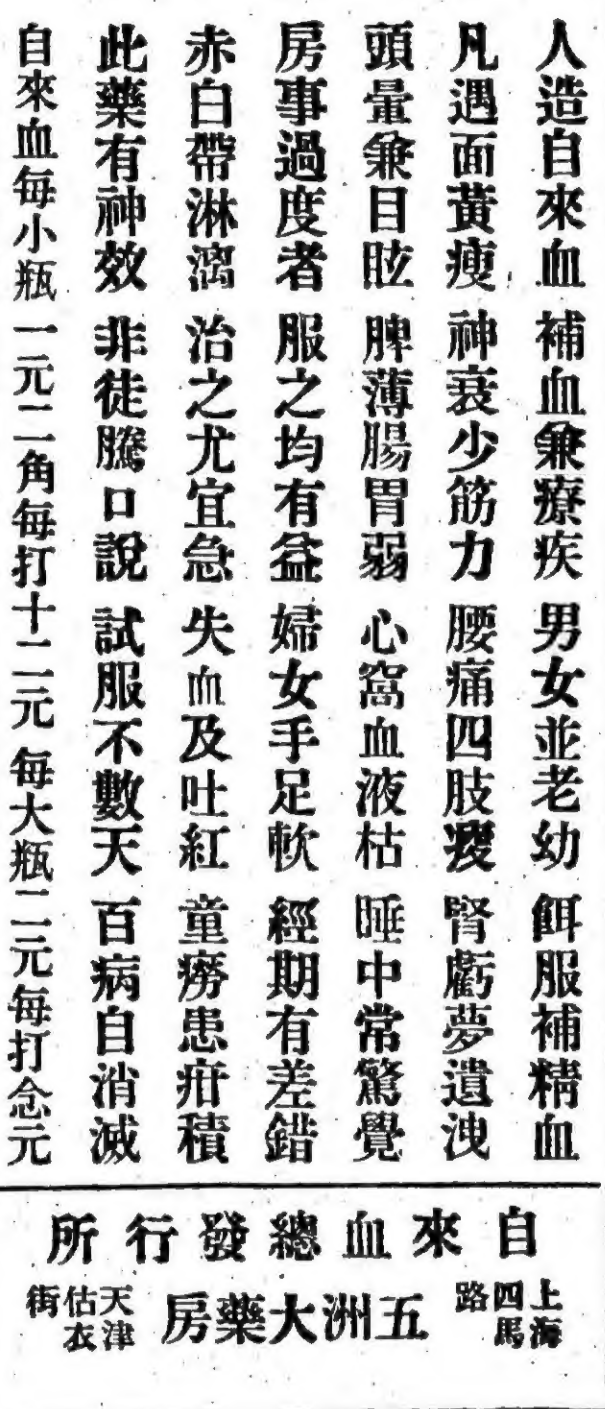 人造自來血 補血兼療疾 男女並老幼 餌服補精血
凡遇面黃瘦 神衰少筋力 腰痛四肢痠 腎虧夢遺洩
頭暈兼目眩 脾薄腸胃弱 心窩血液枯 睡中常驚覺
房事過度者 服之均有益 婦女手足軟 經期有差錯
赤白帶淋漓 治之尤宜急 失血及吐紅 童癆患疳積
此藥有神效 非徒騰口說 試服不數天 百病自消滅
自來血每小瓶一元二角每打十二元每大瓶二元每打念元
自來血總發行所
上海四馬路
五洲大藥房
天津估衣街